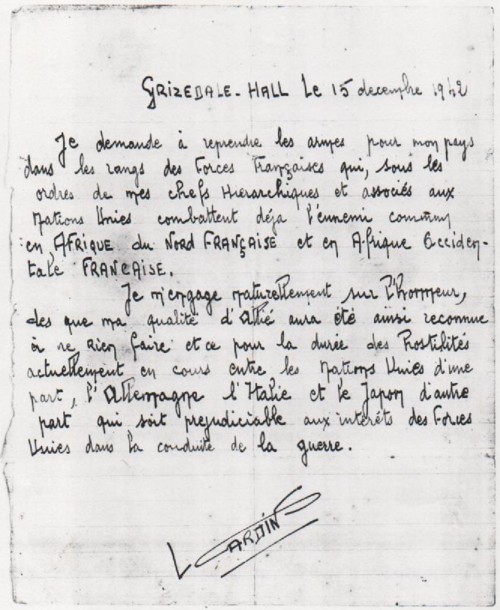 GRIZEDALE-HALL Le 15 decembre 1942
Je demande à reprendre les armes pour mon pays
dans les rangs des Forces Françaises qui, sous les
ordres de mes chefs Hierarchiques et associés aux
Nations Unies combattent déja l'ennemi commun
en AFRIQUE du NORD FRANÇAISE et en Afrique Occiden-
tale FRANÇAISE.
Je m'engage naturellement sur l'honneur,
des que ma qualité d'Allié aura été ainsi reconnue
à ne Rien faire et ce pour la durée des hostilités
actuellement en cours entre les Nations Unies d'une
part, l'Allemagne l'Italie et le Japon d'autre
part qui soit prejudiciable aux intérêts des Forces
Unies dans la conduite de la guerre.